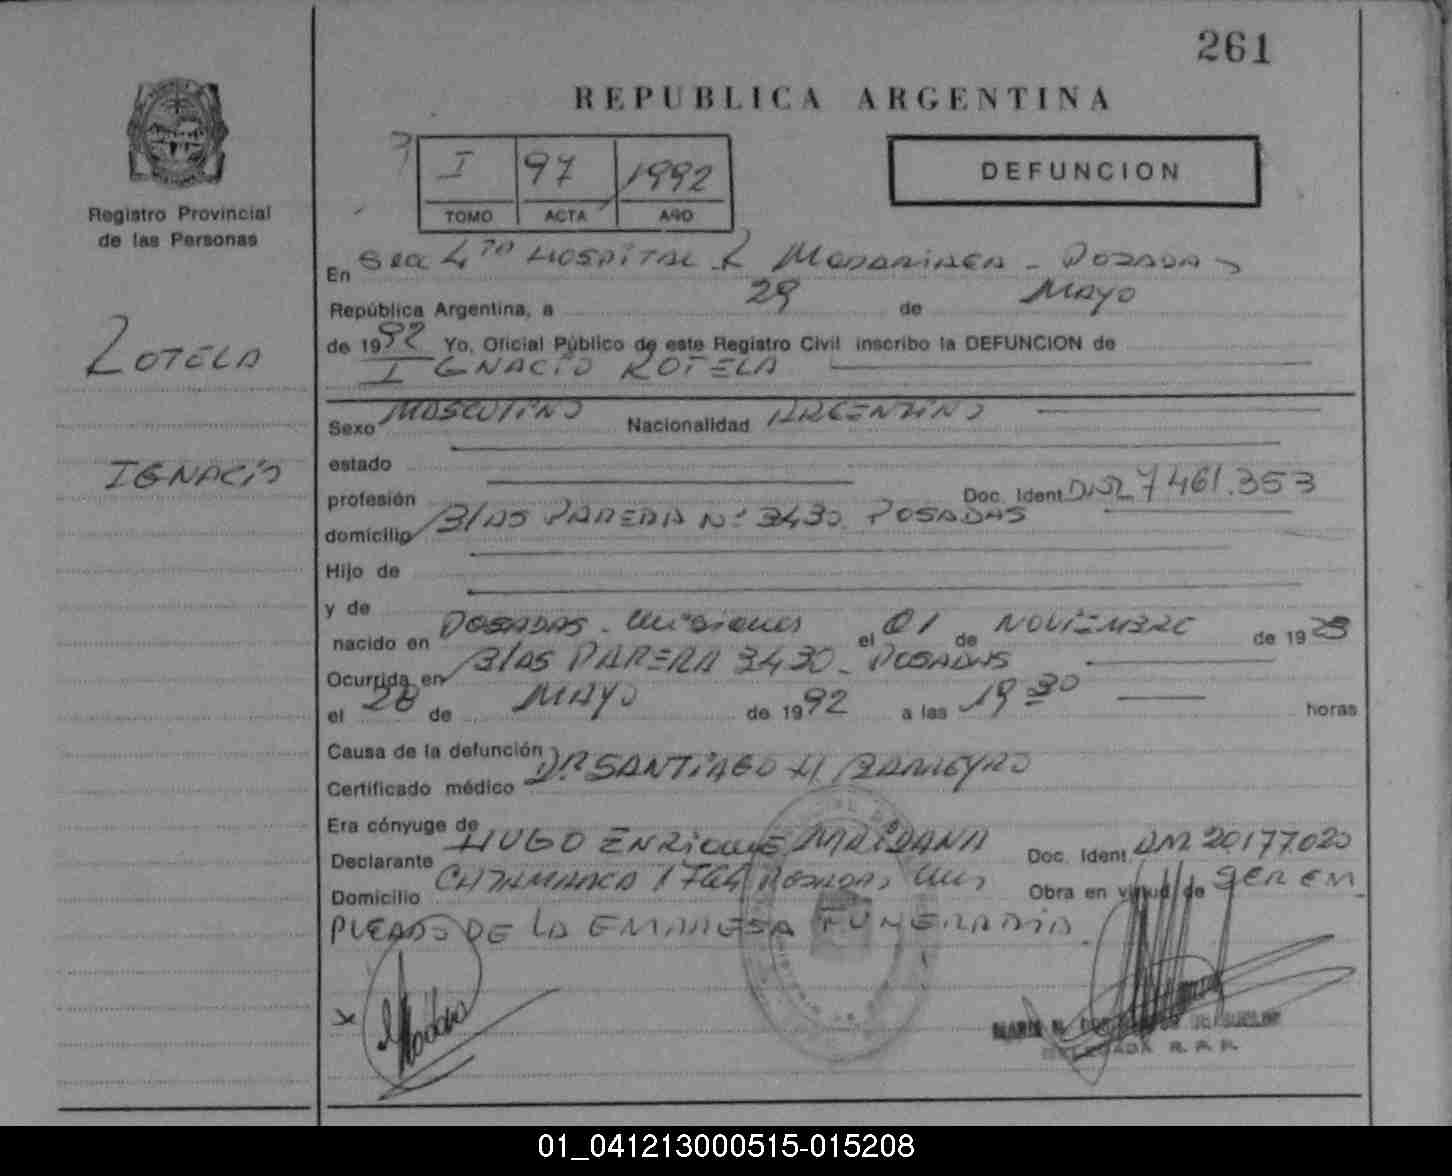 261
REPUBLICA ARGENTINA
I 97 1992
TOMO ACTA AÑO
DEFUNCION
Registro Provincial
de las Personas
ROTELA
IGNACIO
En Secc 4ta HOSPITAL R MADARIAGA - POSADAS
República Argentina, a 29 de MAYO
de 1992 Yo, Oficial Público de este Registro Civil inscribo la DEFUNCION de
IGNACIO ROTELA
Sexo MASCULINO Nacionalidad ARGENTINO
estado
profesión Doc. Ident DNI 7461.353
domicilio Blas PARERA Nº 3430 POSADAS
Hijo de
y de
nacido en POSADAS - Misiones el 01 de NOVIEMBRE de 19
Ocurrida en Blas PARERA 3430 - POSADAS
el 28 de MAYO de 1992 a las 19 30 horas
Causa de la defunción
Certificado médico Dr SANTIAGO H BARREYRO
Era cónyuge de
Declarante HUGO ENRIQUE MAIDANA Doc. Ident DNI 20177020
Domicilio CATAMARCA 1764 POSADAS Mis Obra en virtud de SER EM
PLEADO DE LA EMPRESA FUNERARIA
DELEGADA R. P. P.
01_041213000515-015208